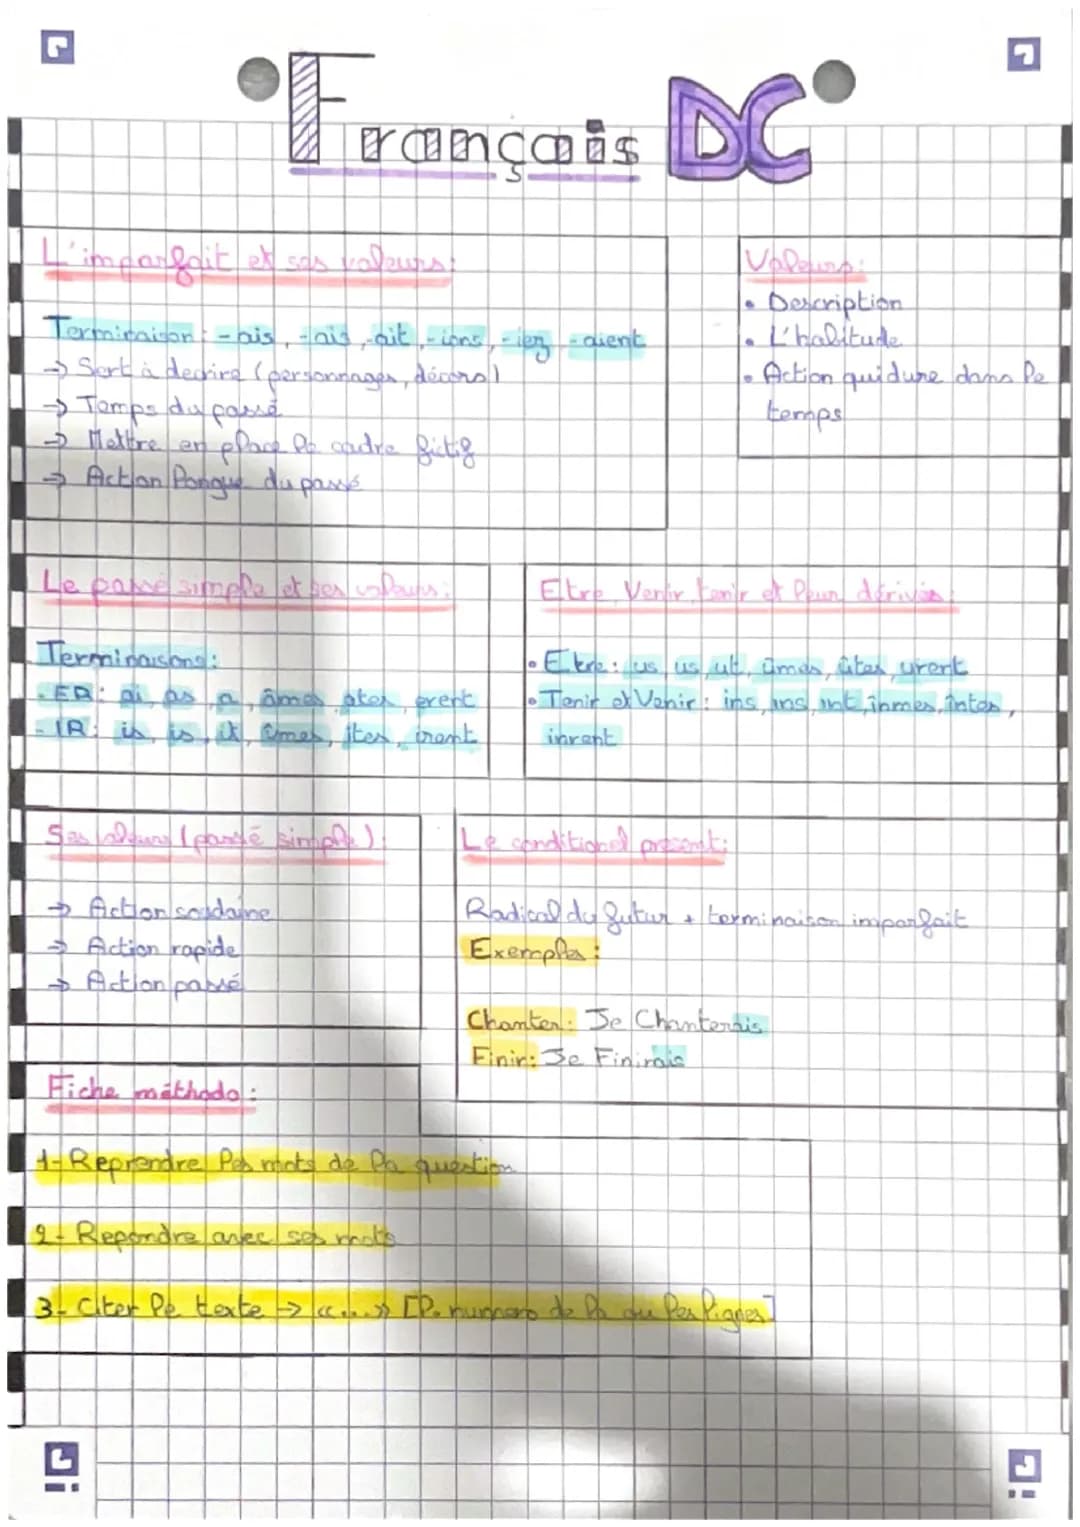 Français DC
L'imparfait et ses valeurs:
Terminaison: -ais, -ais, -ait, -ions, -iez, -aient
→ Sert à decrire (personnages, décors)
→ Temps du passé
→ Mettre en place le cadre fictif
→ Action longue du passé
Valeurs:
• Description
• L'habitude
• Action qui dure dans le
temps
Le passé simple et ses valeurs:
Terminaisons:
- ER: ai, as, a, âmes, ates, erent
- IR: is, is, it, îmes, ites, irent
Etre, Venir, tenir et leur dérivés:
• Etre: us, us, ut, ûmes, ûtes, urent
• Tenir et Venir: ins, ins, int, înmes, întes,
inrent
Ses valeurs (passé simple):
→ Action soudaine
→ Action rapide
→ Action passé
Le conditionel present:
Radical du futur + terminaison imparfait
Exemples:
Chanter: Je Chanterais
Finir: Je Finirais
Fiche méthode:
1- Reprendre les mots de la question
2- Repondre avec ses mots
3- Citer le texte → «...» [l. numero de la ou les lignes]